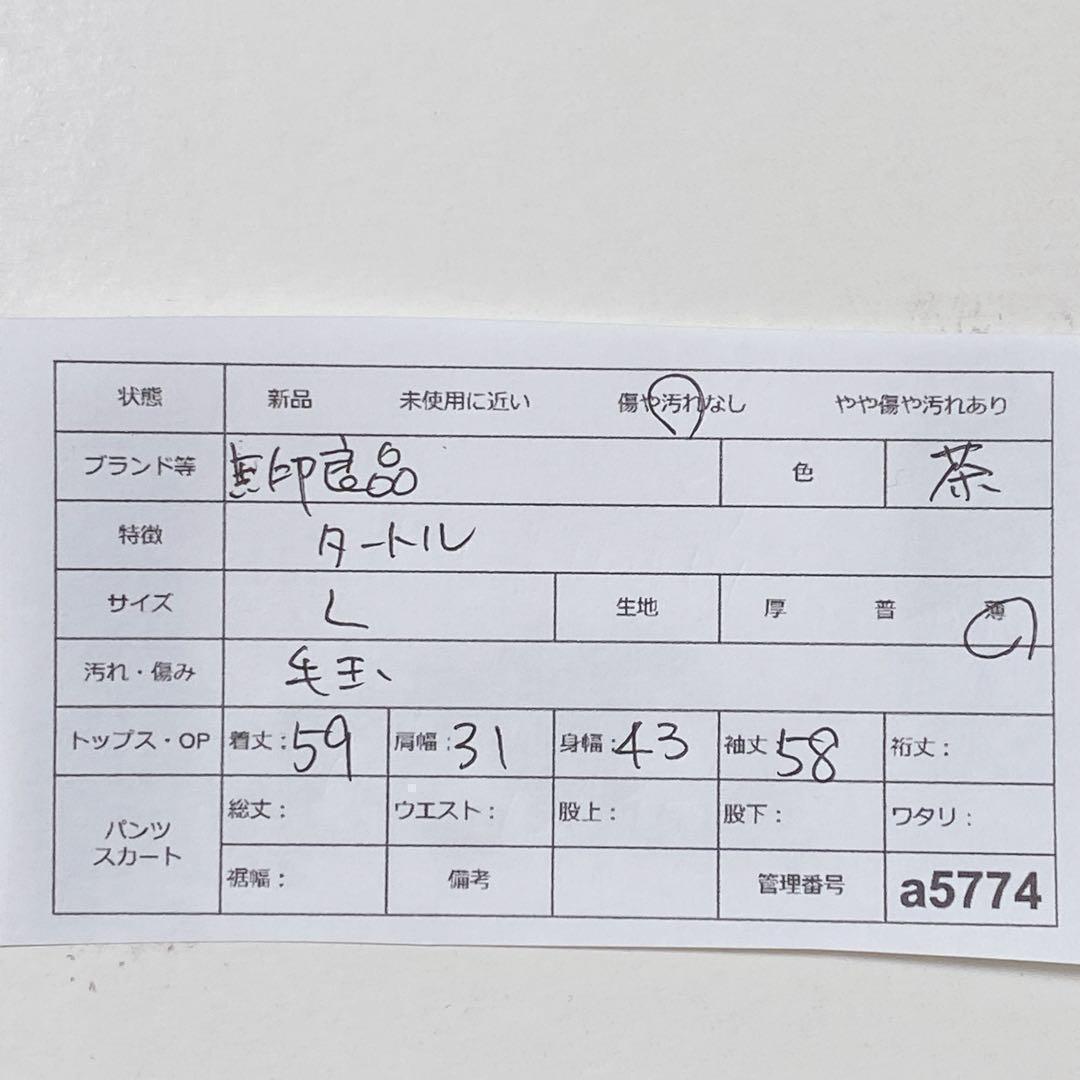 状態 新品 未使用に近い 傷や汚れなし やや傷や汚れあり
ブランド等 無印良品 色 茶
特徴 タートル
サイズ L 生地 厚 普 薄
汚れ・傷み 毛玉、
トップス・OP 着丈:59 肩幅:31 身幅:43 袖丈58 裄丈:
パンツ スカート 総丈: ウエスト: 股上: 股下: ワタリ:
裾幅: 備考 管理番号 a5774